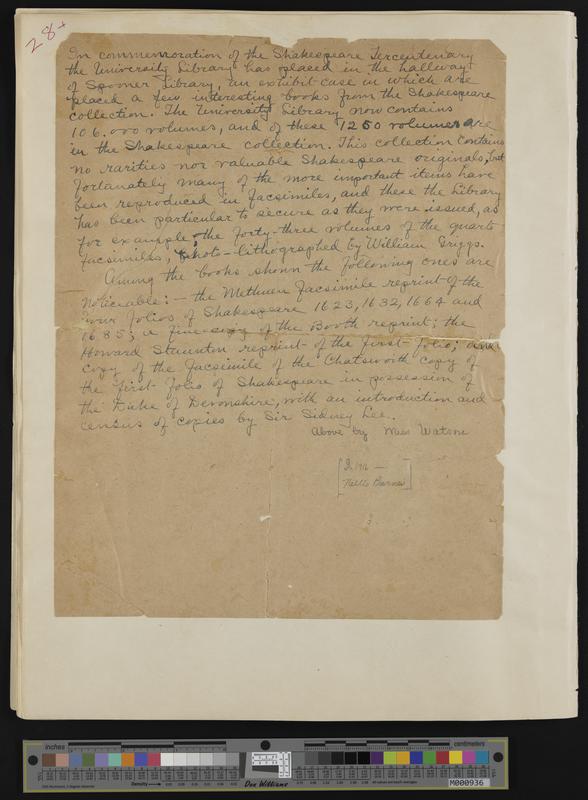 28+
In commemoration of the Shakespeare Tercentenary
the University Library has placed in the hallway
of Spooner Library, an exhibit case in which are
placed a few interesting books from the Shakespeare
collection. The University Library now contains
106.000 volumes, and of these 1250 volumes are
in the Shakespeare collection. This collection contains
no rarities nor valuable Shakespeare originals, but
fortunately many of the more important items have
been reproduced in facsimiles, and these the Library
has been particular to secure as they were issued, as
for example, the forty-three volumes of the quarto
facsimiles, photo-lithographed by William Griggs.
Among the books shown the following ones are
noticeable:- the Methuen facsimile reprint of the
four folios of Shakespeare 1623, 1632, 1664 and
1685; a fine copy of the Booth reprint; the
Howard Staunton reprint of the first folio; and
copy of the facsimile of the Chatsworth copy of
the first folio of Shakespeare in possession of
the Duke of Devonshire, with an introduction and
census of copies by Sir Sidney Lee.
Above by Miss Watson
Nelle Barnes
inches
centimeters
Density
Don Williams
M000936